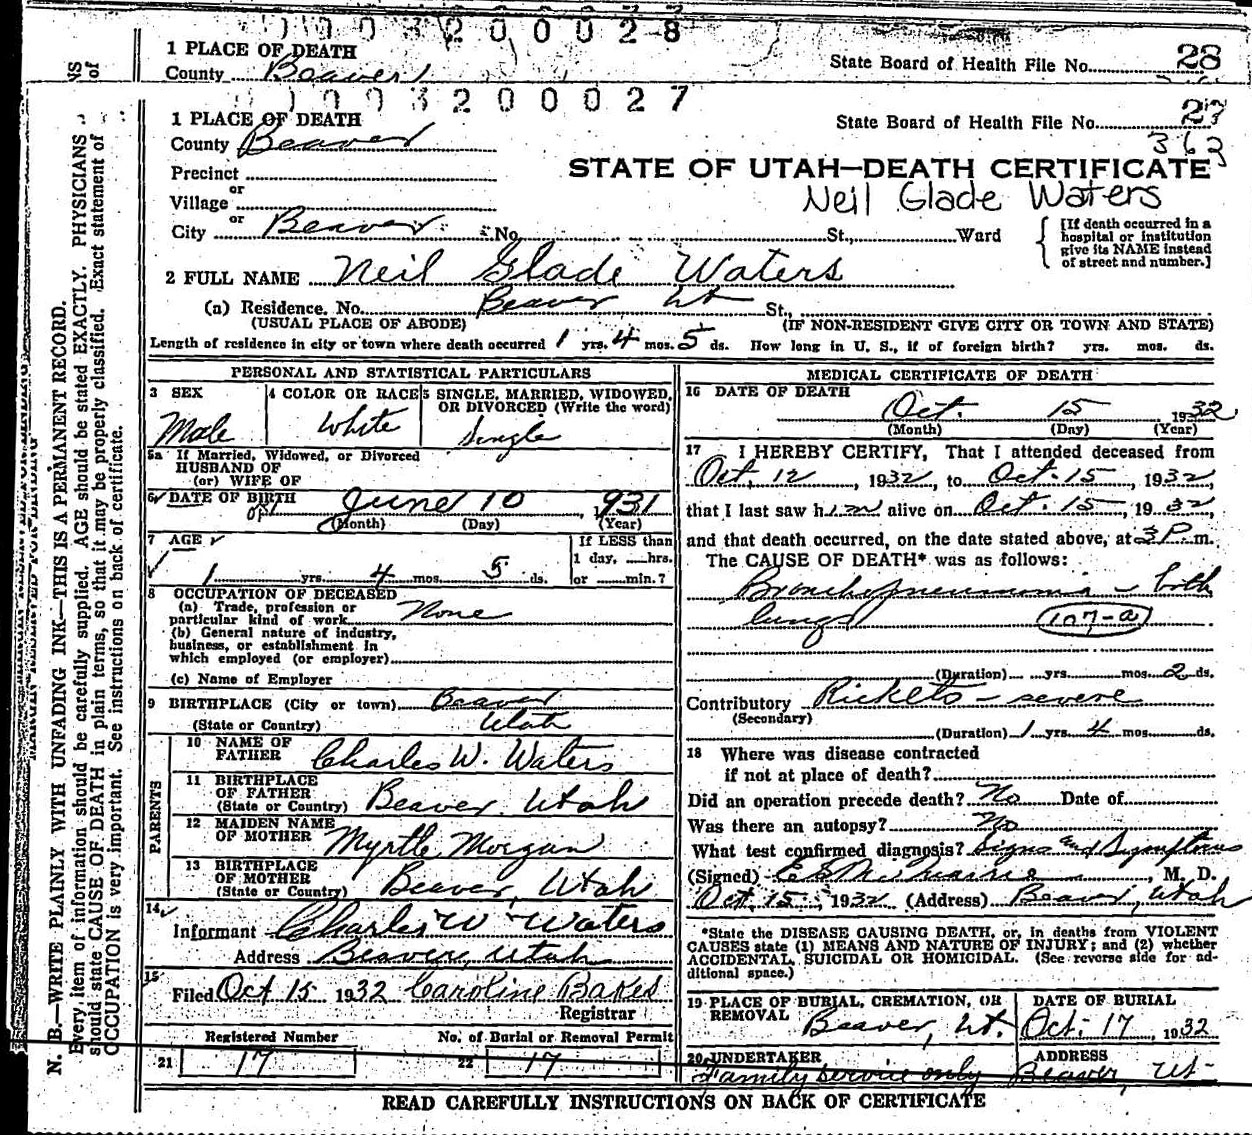 00320028
1 PLACE OF DEATH
County Beaver
State Board of Health File No. 28
00320027
1 PLACE OF DEATH
State Board of Health File No. 27
363
County Beaver
STATE OF UTAH—DEATH CERTIFICATE
Neil Glade Waters
Precinct
or
Village
or
City Beaver No. St., Ward
[If death occurred in a
hospital or institution
give its NAME instead
of street and number.]
2 FULL NAME Neil Glade Waters
(a) Residence. No. Beaver Ut St.,
(USUAL PLACE OF ABODE) (IF NON-RESIDENT GIVE CITY OR TOWN AND STATE)
Length of residence in city or town where death occurred 1 yrs. 4 mos. 5 ds. How long in U. S., if of foreign birth? yrs. mos. ds.
PERSONAL AND STATISTICAL PARTICULARS
3 SEX
Male
4 COLOR OR RACE
White
5 SINGLE, MARRIED, WIDOWED,
OR DIVORCED (Write the word)
Single
5a If Married, Widowed, or Divorced
HUSBAND OF
(or) WIFE OF
6 DATE OF BIRTH June 10 1931
(Month) (Day) (Year)
7 AGE
1 yrs. 4 mos. 5 ds.
If LESS than
1 day, hrs.
or min.?
8 OCCUPATION OF DECEASED
(a) Trade, profession or
particular kind of work None
(b) General nature of industry,
business, or establishment in
which employed (or employer)
(c) Name of Employer
9 BIRTHPLACE (City or town) Beaver
(State or Country) Utah
PARENTS
10 NAME OF
FATHER Charles W. Waters
11 BIRTHPLACE
OF FATHER
(State or Country) Beaver, Utah
12 MAIDEN NAME
OF MOTHER Myrtle Morgan
13 BIRTHPLACE
OF MOTHER
(State or Country) Beaver, Utah
14
Informant Charles W Waters
Address Beaver, Utah
15
Filed Oct 15 1932 Caroline Bakes
Registrar
Registered Number No. of Burial or Removal Permit
21 17 22 17
MEDICAL CERTIFICATE OF DEATH
16 DATE OF DEATH
Oct. 15 1932
(Month) (Day) (Year)
17 I HEREBY CERTIFY, That I attended deceased from
Oct. 12, 1932, to Oct. 15, 1932,
that I last saw him alive on Oct. 15, 1932,
and that death occurred, on the date stated above, at 3 P. m.
The CAUSE OF DEATH* was as follows:
Bronchopneumonia – both
lungs 107-a
(Duration) yrs. mos. 2 ds.
Contributory Rickets – severe
(Secondary)
(Duration) 1 yrs. 4 mos. ds.
18 Where was disease contracted
if not at place of death?
Did an operation precede death? No Date of
Was there an autopsy? No
What test confirmed diagnosis? Signs and Symptoms
(Signed) , M. D.
Oct. 15, 1932 (Address) Beaver, Utah
*State the DISEASE CAUSING DEATH, or, in deaths from VIOLENT
CAUSES state (1) MEANS AND NATURE OF INJURY; and (2) whether
ACCIDENTAL, SUICIDAL OR HOMICIDAL. (See reverse side for ad-
ditional space.)
19 PLACE OF BURIAL, CREMATION, OR
REMOVAL Beaver, Ut.
DATE OF BURIAL
Oct. 17 1932
20 UNDERTAKER
Family service only
ADDRESS
Beaver, Ut-
READ CAREFULLY INSTRUCTIONS ON BACK OF CERTIFICATE
N. B.—WRITE PLAINLY WITH UNFADING INK—THIS IS A PERMANENT RECORD.
Every item of information should be carefully supplied. AGE should be stated EXACTLY. PHYSICIANS
should state CAUSE OF DEATH in plain terms, so that it may be properly classified. Exact statement of
OCCUPATION is very important. See instructions on back of certificate.